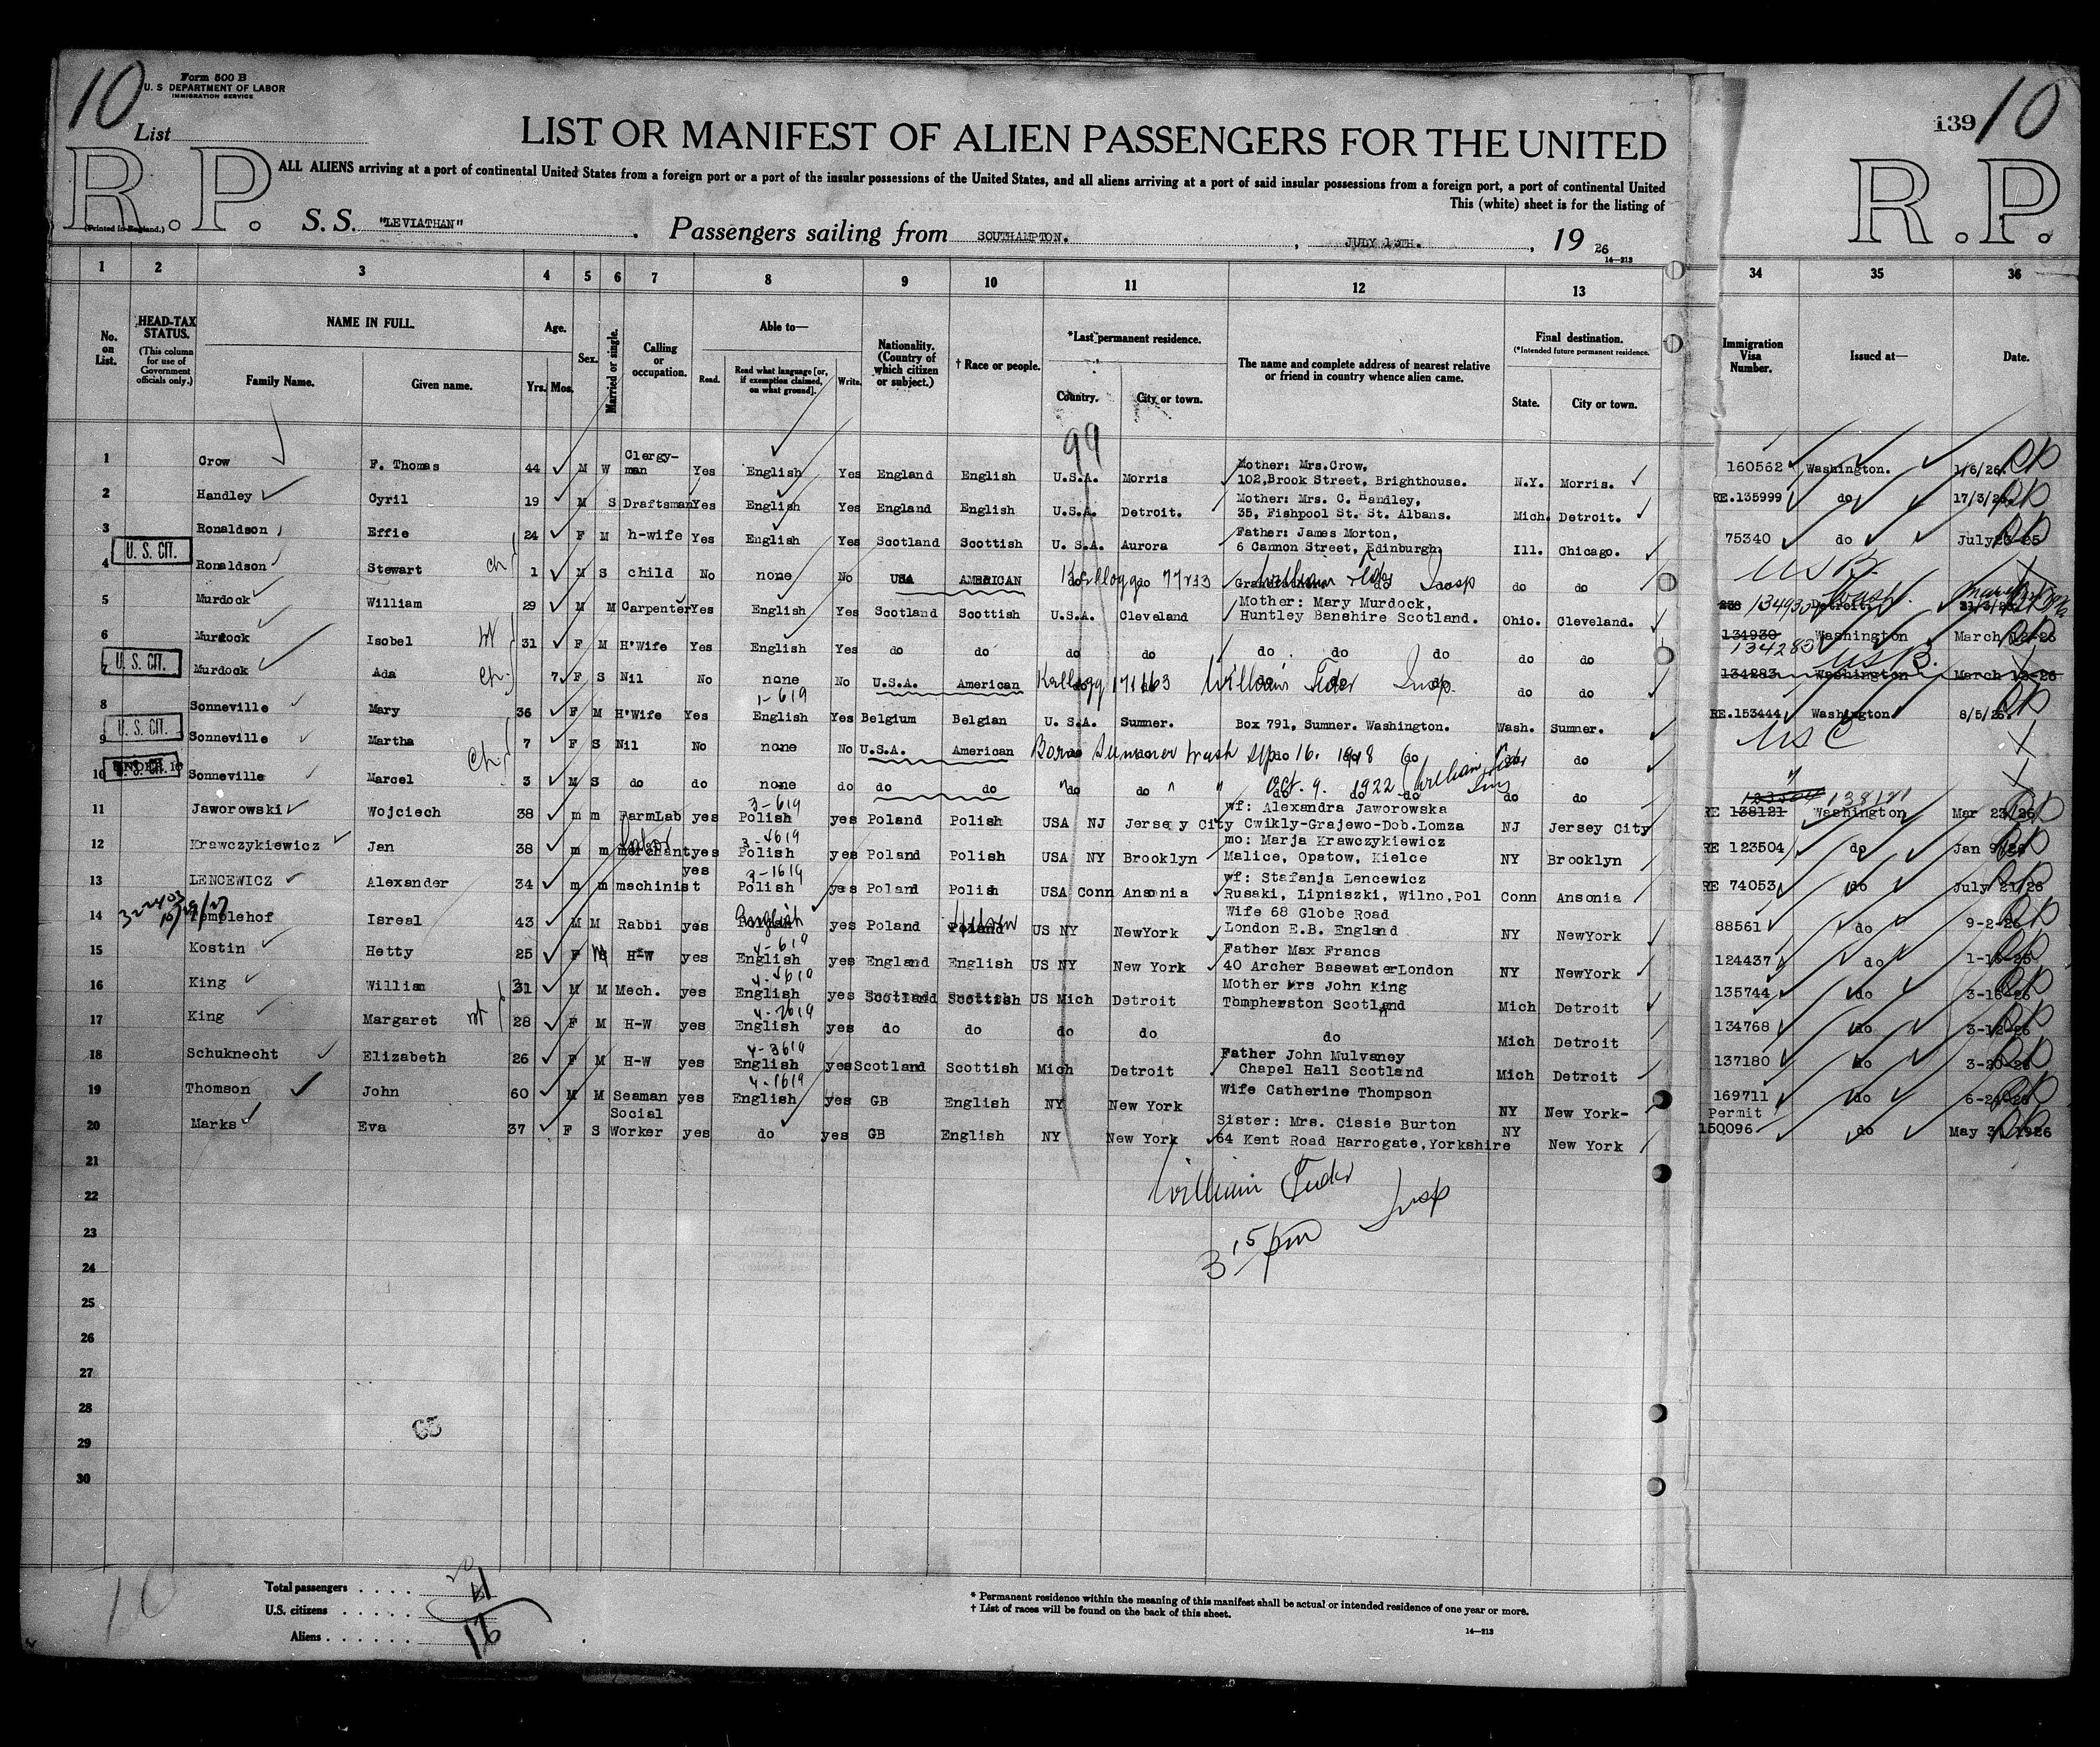 10
Form 500 B
U. S DEPARTMENT OF LABOR
IMMIGRATION SERVICE
List
LIST OR MANIFEST OF ALIEN PASSENGERS FOR THE UNITED
139 10
R.P.
R.P.
(Printed in England.)
ALL ALIENS arriving at a port of continental United States from a foreign port or a port of the insular possessions of the United States, and all aliens arriving at a port of said insular possessions from a foreign port, a port of continental United
This (white) sheet is for the listing of
S. S. "LEVIATHAN" . Passengers sailing from SOUTHAMPTON. , JULY 13TH. , 19 26
14—213
1 2 3 4 5 6 7 8 9 10 11 12 13 34 35 36
No. on List.
HEAD-TAX STATUS. (This column for use of Government officials only.)
NAME IN FULL.
Family Name. Given name.
Age. Yrs. Mos.
Sex.
Married or single.
Calling or occupation.
Able to—
Read. Read what language [or, if exemption claimed, on what ground]. Write.
Nationality. (Country of which citizen or subject.)
† Race or people.
*Last permanent residence.
Country. City or town.
The name and complete address of nearest relative or friend in country whence alien came.
Final destination. (*Intended future permanent residence.
State. City or town.
Immigration Visa Number.
Issued at—
Date.
99
1 Crow F. Thomas 44 M W Clergy-man Yes English Yes England English U.S.A. Morris Mother: Mrs.Crow, 102,Brook Street, Brighthouse. N.Y. Morris. 160562 Washington. 1/6/26.
2 Handley Cyril 19 M S Draftsman Yes English Yes England English U.S.A. Detroit. Mother: Mrs. C. Handley, 35, Fishpool St. St. Albans. Mich. Detroit. RE.135999 do 17/3/26.
3 Ronaldson Effie 24 F M h-wife Yes English Yes Scotland Scottish U. S.A. Aurora Father: James Morton, 6 Cannon Street, Edinburgh. Ill. Chicago. 75340 do
U. S. CIT.
4 Ronaldson Stewart ch 1 M S child No none No USA AMERICAN Kellogg 77233 William Insp do do USB
5 Murdock William 29 M M Carpenter Yes English Yes Scotland Scottish U.S.A. Cleveland Mother: Mary Murdock, Huntley Banshire Scotland. Ohio. Cleveland. 134930 Detroit Wash.
6 Murdock Isobel 31 F M H'Wife Yes English Yes do do do do do do do do do 134930 134283 Washington March 12-26
U. S. CIT.
7 Murdock Ada ch. 7 F S Nil No none No U.S.A. American Kellogg 171663 William Insp. do do 134283 Washington March 12-26 USB.
8 Sonneville Mary 36 F M H'Wife Yes 1-619 English Yes Belgium Belgian U. S.A. Sumner. Box 791, Sumner. Washington. Wash. Sumner. RE.153444 Washington. 8/5/26.
U. S. CIT.
9 Sonneville Martha Ch. 7 F S Nil No none No U.S.A. American Born Sumner Wash 16. do do USC
U. S. CIT.
10 Sonneville Marcel 3 M S do do none do do do " " " Oct. 9. 1922 William do do
11 Jaworowski Wojciech 38 m m FarmLab yes 3-619 Polish yes Poland Polish USA NJ Jersey City wf: Alexandra Jaworowska Cwikly-Grajewo-Dob.Lomza NJ Jersey City RE 138121 123504 138121 Washington Mar 23/26
12 Krawczykiewicz Jan 38 m m merchant labor yes Polish yes Poland Polish USA NY Brooklyn mo: Marja Krawczykiewicz Malice, Opatow, Kielce NY Brooklyn RE 123504 do Jan 9/26
13 LENCEWICZ Alexander 34 m m machinist yes 3-1619 Polish yes Poland Polish USA Conn Ansonia wf: Stefanja Lencewicz Rusaki, Lipniszki, Wilno,Pol Conn Ansonia RE 74053 do July 21/26
14 Templehof Isreal 43 M M Rabbi yes English yes Poland Poland Hebrew US NY NewYork Wife 68 Globe Road London E.B. England NY NewYork 88561 do
15 Kostin Hetty 25 F H-W yes 4-619 English yes England English US NY New York Father Max Francs 40 Archer BasewaterLondon NY NewYork 124437 do
16 King William 31 M M Mech. yes English yes Scotland Scottish US Mich Detroit Mother Mrs John King Tompherston Scotland Mich Detroit 135744 do 3-16-26
17 King Margaret 28 F M H-W yes 4-2619 English yes do do do do do Mich Detroit 134768 do 3-12-26
18 Schuknecht Elizabeth 26 F M H-W yes 4-3619 English yes Scotland Scottish Mich Detroit Father John Mulvaney Chapel Hall Scotland Mich Detroit 137180 do 3-20-26
19 Thomson John 60 M M Seaman yes 4-1619 English yes GB English NY New York Wife Catherine Thompson NY New York- 169711 do
20 Marks Eva 37 F S Social Worker yes do yes GB English NY New York Sister: Mrs. Cissie Burton 64 Kent Road Harrogate,Yorkshire NY New York Permit 150096 do May 3, 1926
21
William Insp
22
23
3 15 pm
24
25
26
27
28
29
30
10
Total passengers . . . .
U.S. citizens . . . . .
Aliens . . . . . . 16
* Permanent residence within the meaning of this manifest shall be actual or intended residence of one year or more.
† List of races will be found on the back of this sheet.
14—213